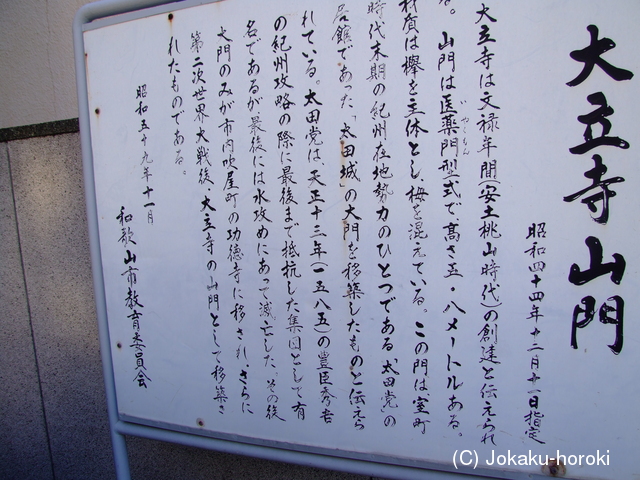 大立寺山門
昭和四十四年十二月十一日指定
大立寺は文禄年間(安土桃山時代)の創建と伝えられ
る。山門は医薬門型式で高さ五・八メートルある。
やくもん
材質は欅を主体とし、栂を混えている。この門は室町
時代末期の紀州在地勢力のひとつである「太田党」の
居館であった「太田城」の大門を移築したものと伝えら
れている。太田党は、天正十三年(一五八五)の豊臣秀吉
の紀州攻略の際に最後まで抵抗した集団として有
名であるが最後には水攻めにあって滅亡した。その後
大門のみが市内吹屋町の功徳寺に移され、さらに
第二次世界大戦後、大立寺の山門として移築さ
れたものである。
昭和五十九年十一月
和歌山市教育委員会
(C) Jokaku-horoki